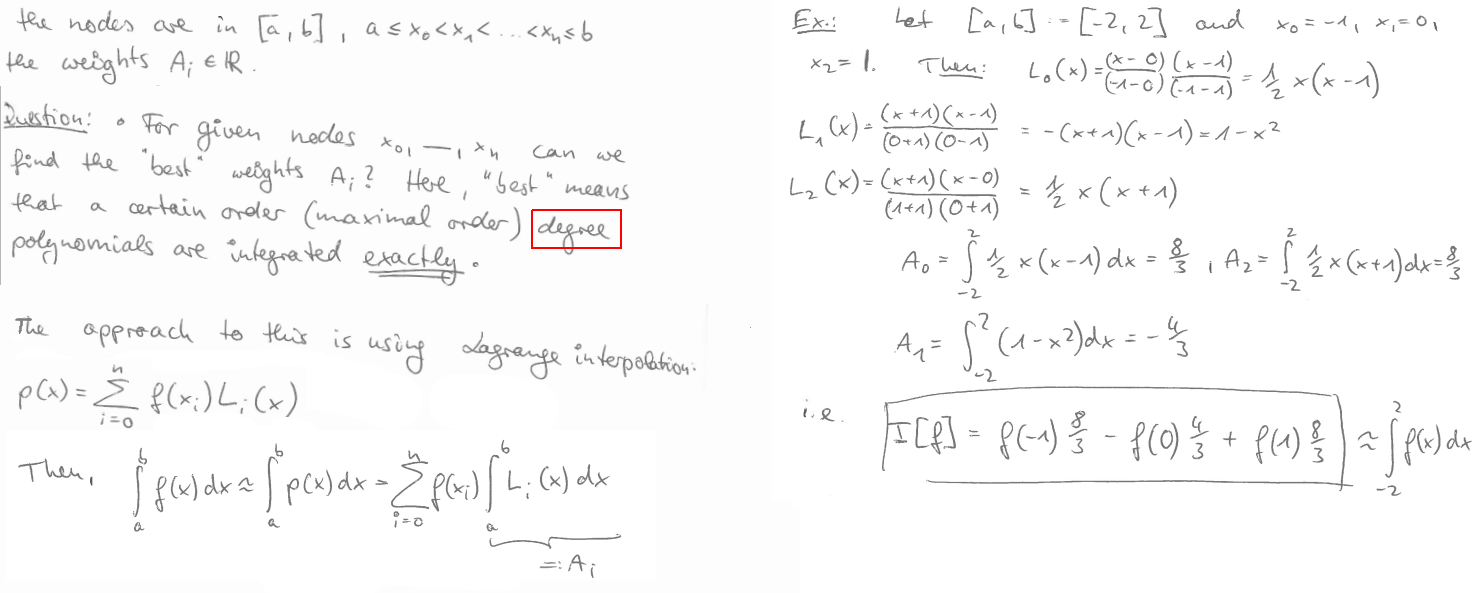 the nodes are in [a,b], a ≤ x₀ < x₁ < ... < xₙ ≤ b
the weights Aᵢ ∈ ℝ.
Question: • For given nodes x₀, —, xₙ can we
find the "best" weights Aᵢ? Here, "best" means
that a certain order (maximal order) degree
polynomials are integrated exactly.
The approach to this is using Lagrange interpolation:
p(x) = ∑_{i=0}^{n} f(xᵢ) Lᵢ(x)
Then, ∫_a^b f(x) dx ≈ ∫_a^b p(x) dx = ∑_{i=0}^{n} f(xᵢ) ∫_a^b Lᵢ(x) dx
=: Aᵢ
Ex.: Let [a,b] := [-2,2] and x₀ = -1, x₁ = 0,
x₂ = 1. Then: L₀(x) = (x-0)/(-1-0) (x-1)/(-1-1) = 1/2 x(x-1)
L₁(x) = (x+1)(x-1)/(0+1)(0-1) = -(x+1)(x-1) = 1-x²
L₂(x) = (x+1)(x-0)/(1+1)(0+1) = 1/2 x(x+1)
A₀ = ∫_{-2}^{2} 1/2 x(x-1) dx = 8/3, A₂ = ∫_{-2}^{2} 1/2 x(x+1) dx = 8/3
A₁ = ∫_{-2}^{2} (1-x²) dx = -4/3
i.e. I[f] = f(-1) 8/3 - f(0) 4/3 + f(1) 8/3 ≈ ∫_{-2}^{2} f(x) dx